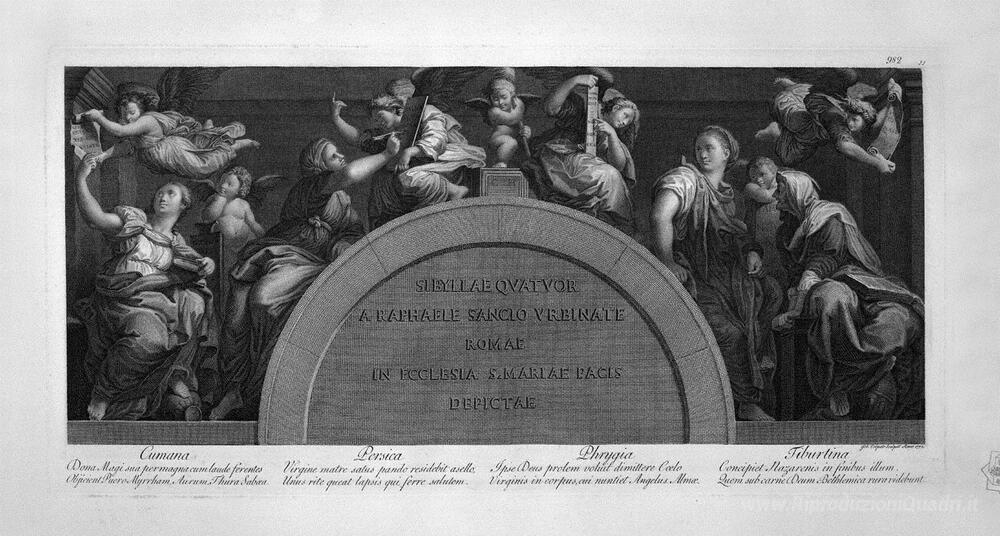 982
SIBYLLAE QVATVOR
A RAPHAELE SANCIO VRBINATE
ROMAE
IN ECCLESIA S. MARIAE PACIS
DEPICTAE
Cumana
Dona Magi sua permagna cum laude ferentes
Objicient Puero Myrrham, Aurum, Thura Sabæa.
Persica
Virgine matre satus pando residebit asello,
Unus rite queat lapsis qui ferre salutem.
Phrygia
Ipse Deus prolem voluit dimittere Coelo
Virginis in corpus, cui nuntiet Angelus Almæ.
Tiburtina
Concipiet Nazarenis in finibus illum,
Quem sub carne Deum Bethlemica rura videbunt.
www.RiproduzioniQuadri.it